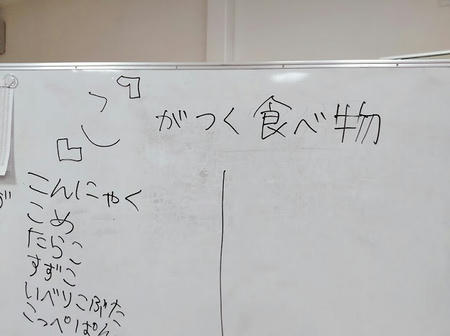 『こ』がつく食べ物
こんにゃく
こめ
たらこ
すずこ
いべりこぶた
こっぺぱん